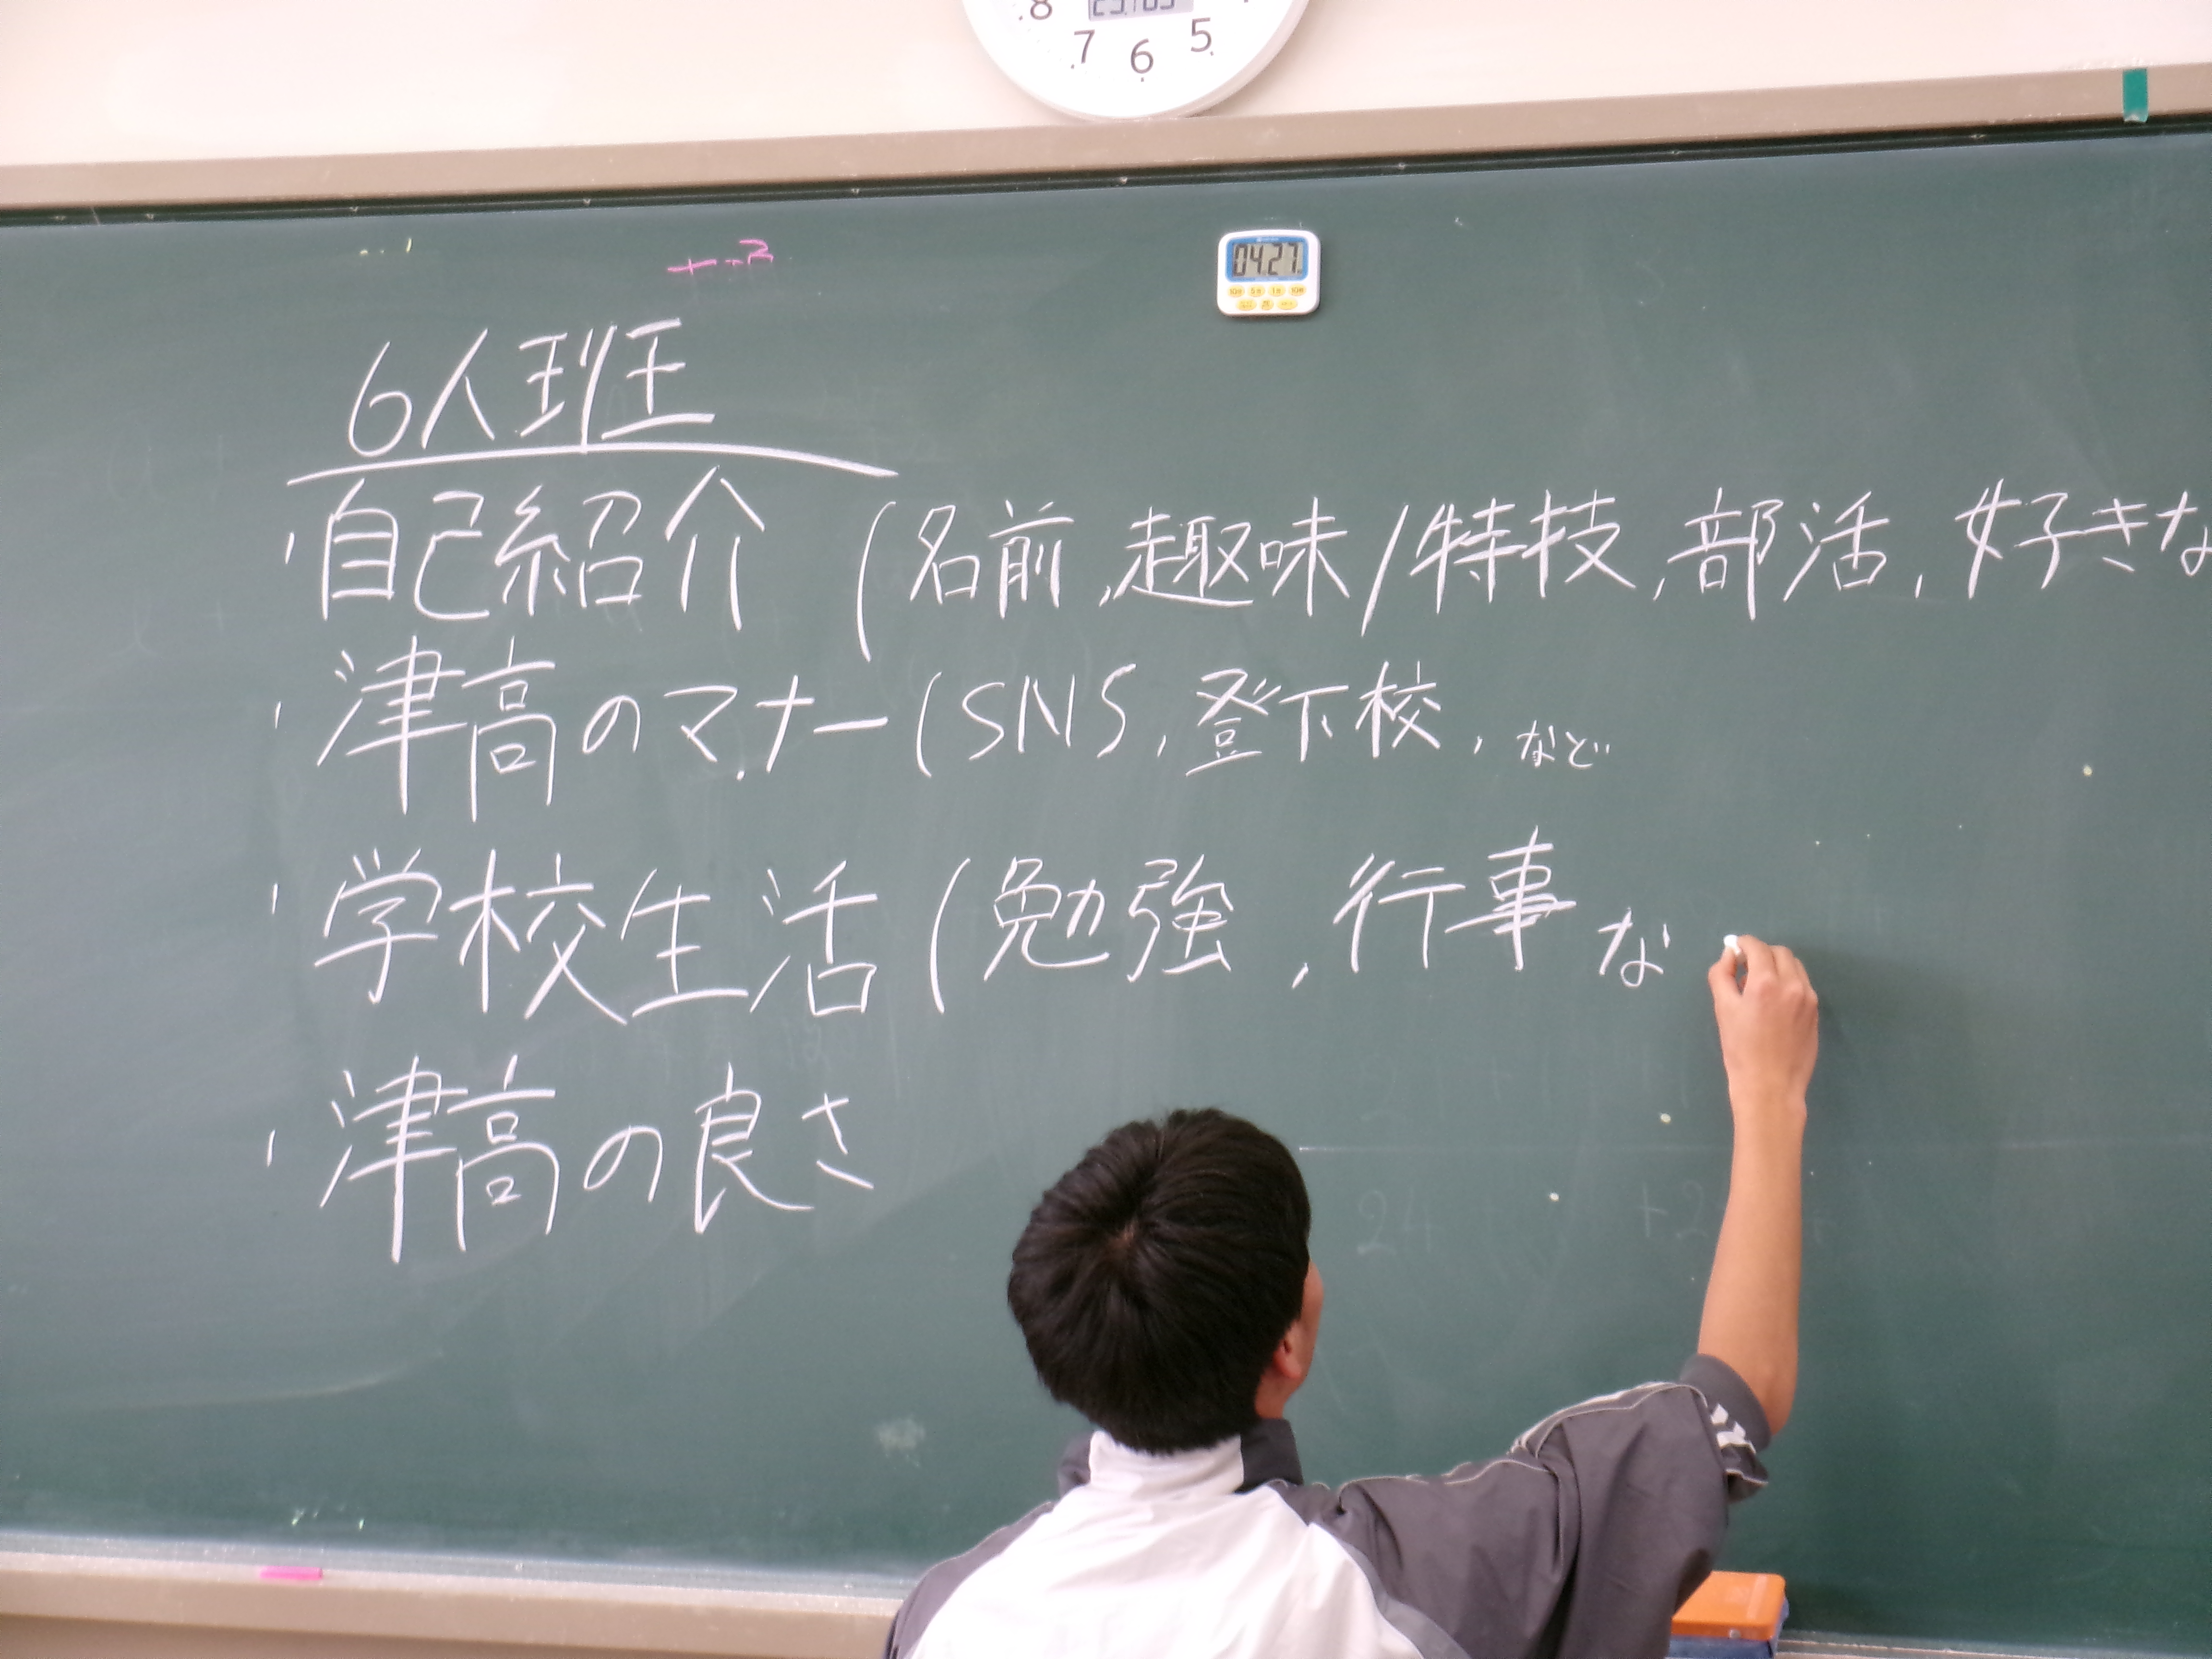 8 7 6 5
04:27
6人班
・自己紹介 (名前,趣味/特技,部活,好きな
・津高のマナー(SNS,登下校,など
・学校生活(勉強,行事な
・津高の良さ